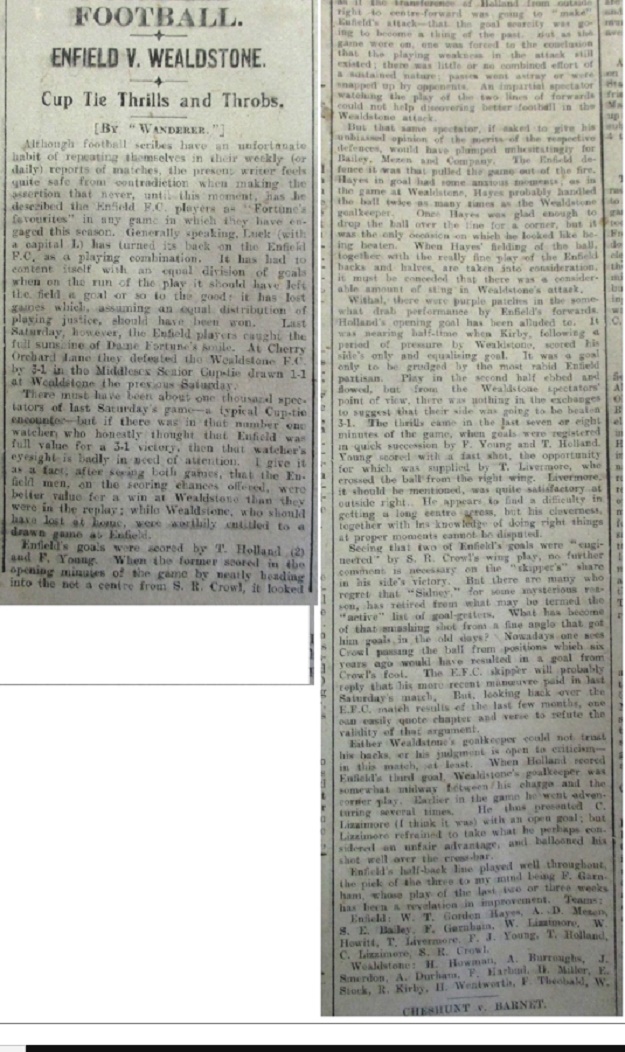 FOOTBALL.
ENFIELD V. WEALDSTONE.
Cup Tie Thrills and Throbs.
[BY "WANDERER."]
Although football scribes have an unfortunate
habit of repeating themselves in their weekly (or
daily) reports of matches, the present writer feels
quite safe from contradiction when making the
assertion that never, until this moment, has he
described the Enfield F.C. players as "Fortune's
favourites" in any game in which they have en-
gaged this season. Generally speaking, Luck (with
a capital L) has turned its back on the Enfield
F.C. as a playing combination. It has had to
content itself with an equal division of goals
when on the run of the play it should have left
the field a goal or so to the good; it has lost
games which, assuming an equal distribution of
playing justice, should have been won. Last
Saturday, however, the Enfield players caught the
full sunshine of Dame Fortune's smile. At Cherry
Orchard Lane they defeated the Wealdstone F.C.
by 3-1 in the Middlesex Senior Cup-tie drawn 1-1
at Wealdstone the previous Saturday.
There must have been about one thousand spec-
tators of last Saturday's game—a typical Cup-tie
encounter—but if there was in that number one
watcher who honestly thought that Enfield was
full value for a 3-1 victory, then that watcher's
eyesight is badly in need of attention. I give it
as a fact, after seeing both games, that the En-
field men, on the scoring chances offered, were
better value for a win at Wealdstone than they
were in the replay; while Wealdstone, who should
have lost at home, were worthily entitled to a
drawn game at Enfield.
Enfield's goals were scored by T. Holland (2)
and F. Young. When the former scored in the
opening minutes of the game by neatly heading
into the net a centre from S. R. Crowl, it looked
as if the transference of Holland from outside
right to centre-forward was going to "make"
Enfield's attack—that the goal scarcity was go-
ing to become a thing of the past. But as the
game wore on, one was forced to the conclusion
that the playing weakness in the attack still
existed; there was little or no combined effort of
a sustained nature; passes went astray or were
snapped up by opponents. An impartial spectator
watching the play of the two lines of forwards
could not help discovering better football in the
Wealdstone attack.
But that same spectator, if asked to give his
unbiased opinion of the merits of the respective
defences, would have plumped unhesitatingly for
Bailey, Menon and Company. The Enfield de-
fence it was that pulled the game out of the fire.
Hayes in goal had some anxious moments, as in
the game at Wealdstone, Hayes probably handled
the ball twice as many times as the Wealdstone
goalkeeper. Once Hayes was glad enough to
drop the ball over the line for a corner, but it
was the only occasion on which he looked like be-
ing beaten. When Hayes' fielding of the ball,
together with the really fine play of the Enfield
backs and halves, are taken into consideration,
it must be conceded that there was a consider-
able amount of sting in Wealdstone's attack.
Withal, there were purple patches in the some-
what drab performance by Enfield's forwards.
Holland's opening goal has been alluded to. It
was nearing half-time when Kirby, following a
period of pressure by Wealdstone, scored his
side's only and equalising goal. It was a goal
only to be grudged by the most rabid Enfield
partisan. Play in the second half ebbed and
flowed, but from the Wealdstone spectators'
point of view, there was nothing in the exchanges
to suggest that their side was going to be beaten
3-1. The thrills came in the last seven or eight
minutes of the game, when goals were registered
in quick succession by F. Young and T. Holland.
Young scored with a fast shot, the opportunity
for which was supplied by T. Livermore, who
crossed the ball from the right wing. Livermore,
it should be mentioned, was quite satisfactory at
outside right. He appears to find a difficulty in
getting a long centre across, but his cleverness,
together with his knowledge of doing right things
at proper moments cannot be disputed.
Seeing that two of Enfield's goals were "engi-
neered" by S. R. Crowl's wing play, no further
comment is necessary on the "skipper's" share
in his side's victory. But there are many who
regret that "Sidney," for some mysterious rea-
son, has retired from what may be termed the
"active" list of goal-getters. What has become
of that smashing shot from a fine angle that got
him goals in the old days? Nowadays one sees
Crowl passing the ball from positions which six
years ago would have resulted in a goal from
Crowl's foot. The E.F.C. skipper will probably
reply that his more recent manœuvre paid in last
Saturday's match. But, looking back over the
E.F.C. match results of the last few months, one
can easily quote chapter and verse to refute the
validity of that argument.
Either Wealdstone's goalkeeper could not trust
his backs, or his judgment is open to criticism—
in this match, at least. When Holland scored
Enfield's third goal, Wealdstone's goalkeeper was
somewhat midway between his charge and the
corner play. Earlier in the game he went adven-
turing several times. He thus presented C.
Lizzimore (I think it was) with an open goal; but
Lizzimore refrained to take what he perhaps con-
sidered an unfair advantage, and ballooned his
shot well over the cross-bar.
Enfield's half-back line played well throughout,
the pick of the three to my mind being F. Garn-
ham, whose play of the last two or three weeks
has been a revelation in improvement. Teams:
Enfield: W. T. Gorden Hayes, A. D. Menon,
S. E. Bailey, F. Garnham, W. Lizzimore, W.
Howitt, T. Livermore, F. J. Young, T. Holland,
C. Lizzimore, S. R. Crowl.
Wealdstone: H. Bowman, A. Burroughs, J.
Smerdon, A. Durham, F. Harbud, D. Miller, E.
Stock, R. Kirby, H. Wentworth, F. Theobald, W.
CHESHUNT v. BARNET.